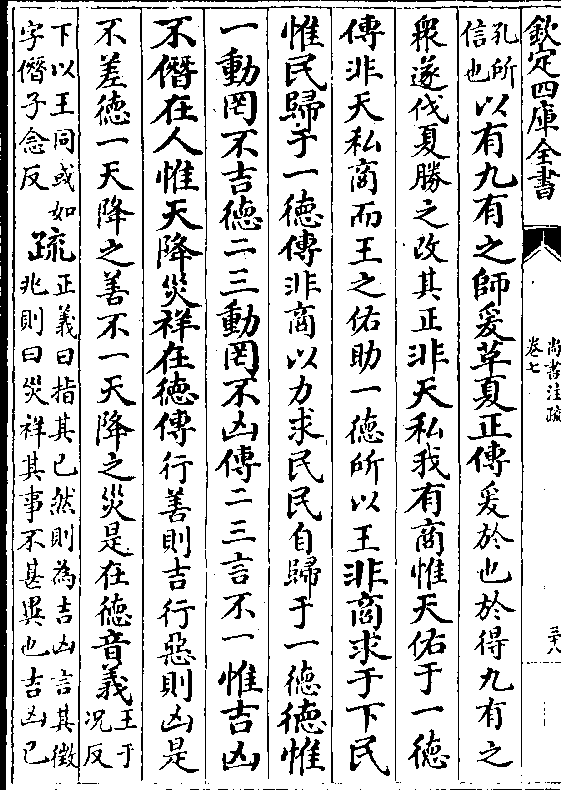 欽定四庫全書
尚書注疏
卷七
三十八
孔所
信也
以有九有之師爰革夏正傳爰於也於得九有之
衆遂伐夏勝之改其正非天私我有商惟天佑于一德
傳非天私商而王之佑助一德所以王非商求于下民
惟民歸于一德傳非商以力求民民自歸于一德德惟
一動罔不吉德二三動罔不凶傳二三言不一惟吉凶
不僭在人惟天降災祥在德傳行善則吉行惡則凶是
不差德一天降之善不一天降之災是在德音義
王于
况反
下以王同或如
字僭子念反
疏
正義曰指其已然則為吉凶言其徵
兆則曰災祥其事不甚異也吉凶已